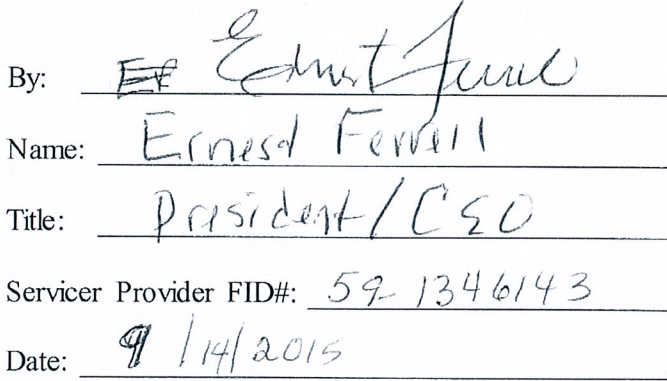 By: EF Ernest Ferrell
Name: Ernest Ferrell
Title: President/CEO
Servicer Provider FID#: 59-1346143
Date: 9/14/2015